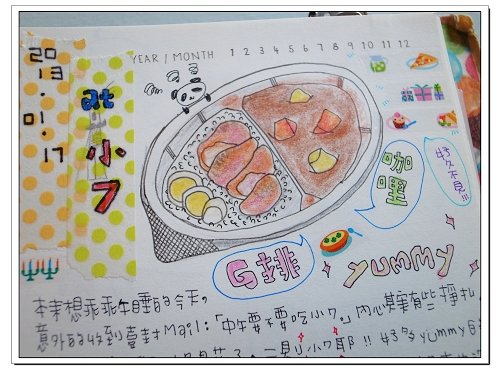 2013.01.17
at 小ㄋ
YEAR / MONTH 1 2 3 4 5 6 7 8 9 10 11 12
好久不見!!!
咖哩
G排
YUMMY
本來想乖乖午睡的今天,
意外的收到壹封Mail:「中午要不要吃小ㄋ。」內心其實有些掙扎
一見小ㄋ耶!! 好多yummy